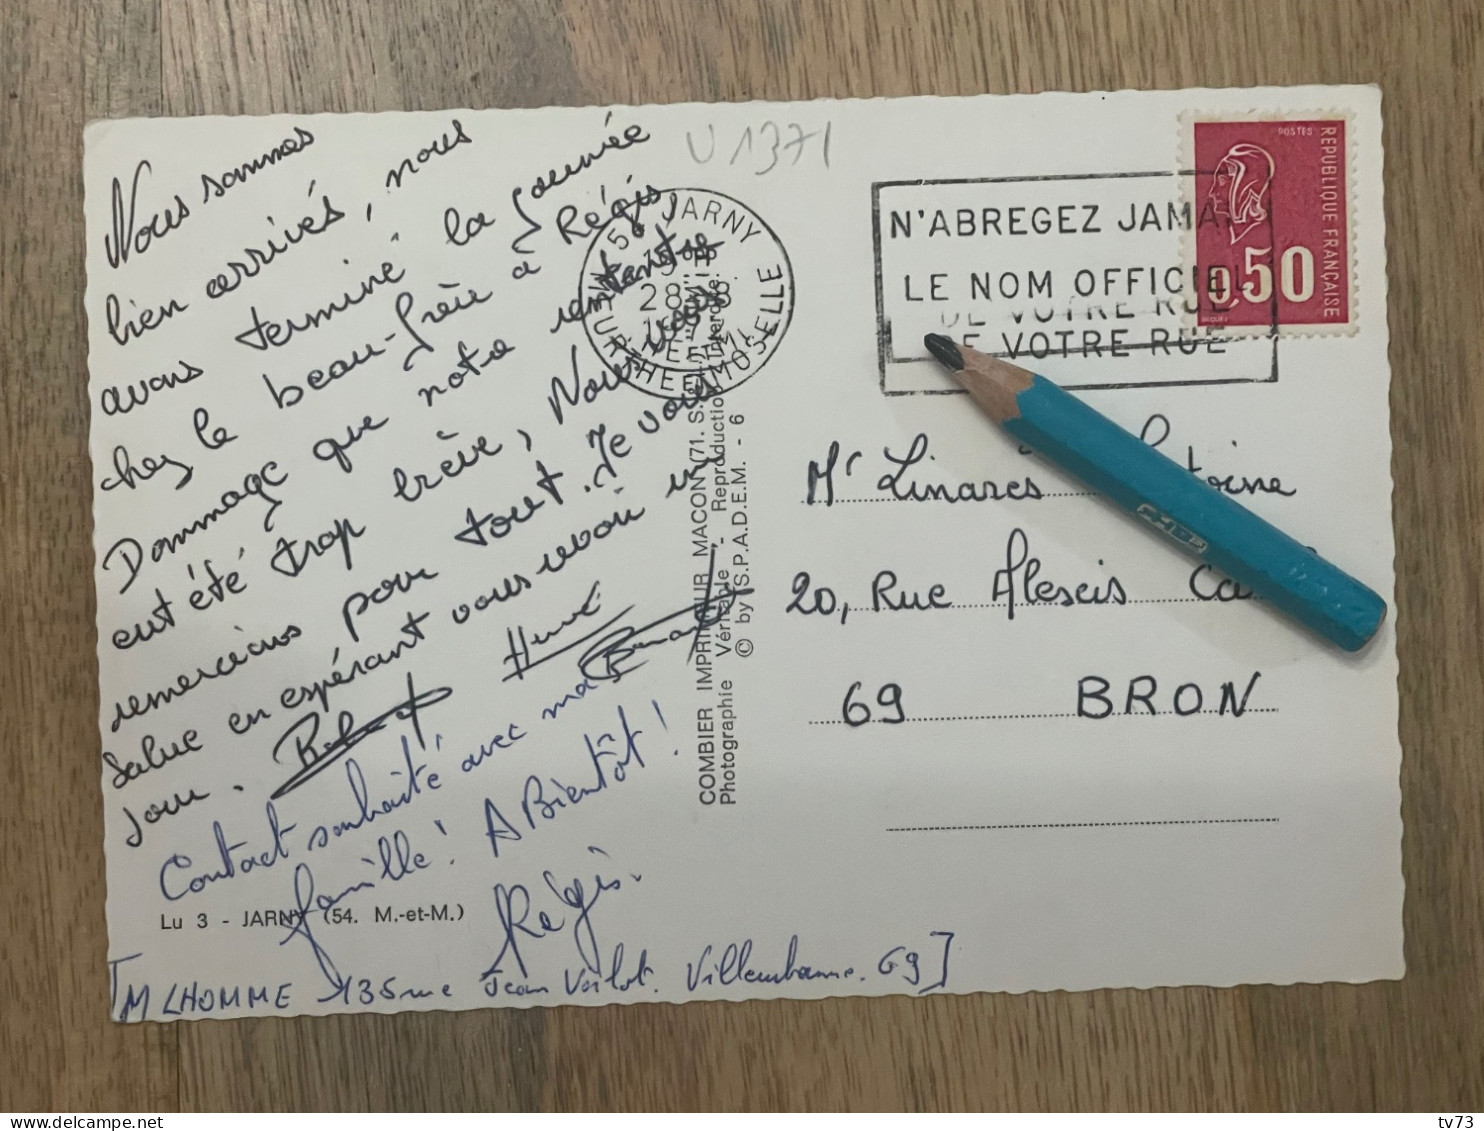 U 1371
Nous sommes
bien arrivés, nous
avons terminé la journée
chez le beau-frère à Régis,
Dommage que notre
ent été trop brève, Nous vous
remercions pour tout. Je vous
salue en espérant vous revoir un
jour.
Robert
Hervé
Bernard
Contact souhaité avec ma
famille! A Bientôt!
Régis.
Lu 3 - JARNY (54. M.-et-M.)
[M LHOMME 135 rue Jean Voillot. Villeurbanne. 69]
COMBIER IMPRIMEUR MACON (71. S.
Photographie Véritable - Reproduction Interdite.
© by S.P.A.D.E.M. - 6
54 JARNY
MEURTHE ET MOSELLE
N'ABREGEZ JAMA
LE NOM OFFICIEL
DE VOTRE RUE
DE VOTRE RUE
POSTES
REPUBLIQUE FRANÇAISE
0,50
Mr Linares toine
20, Rue Alexis Ca
69 BRON
tv73